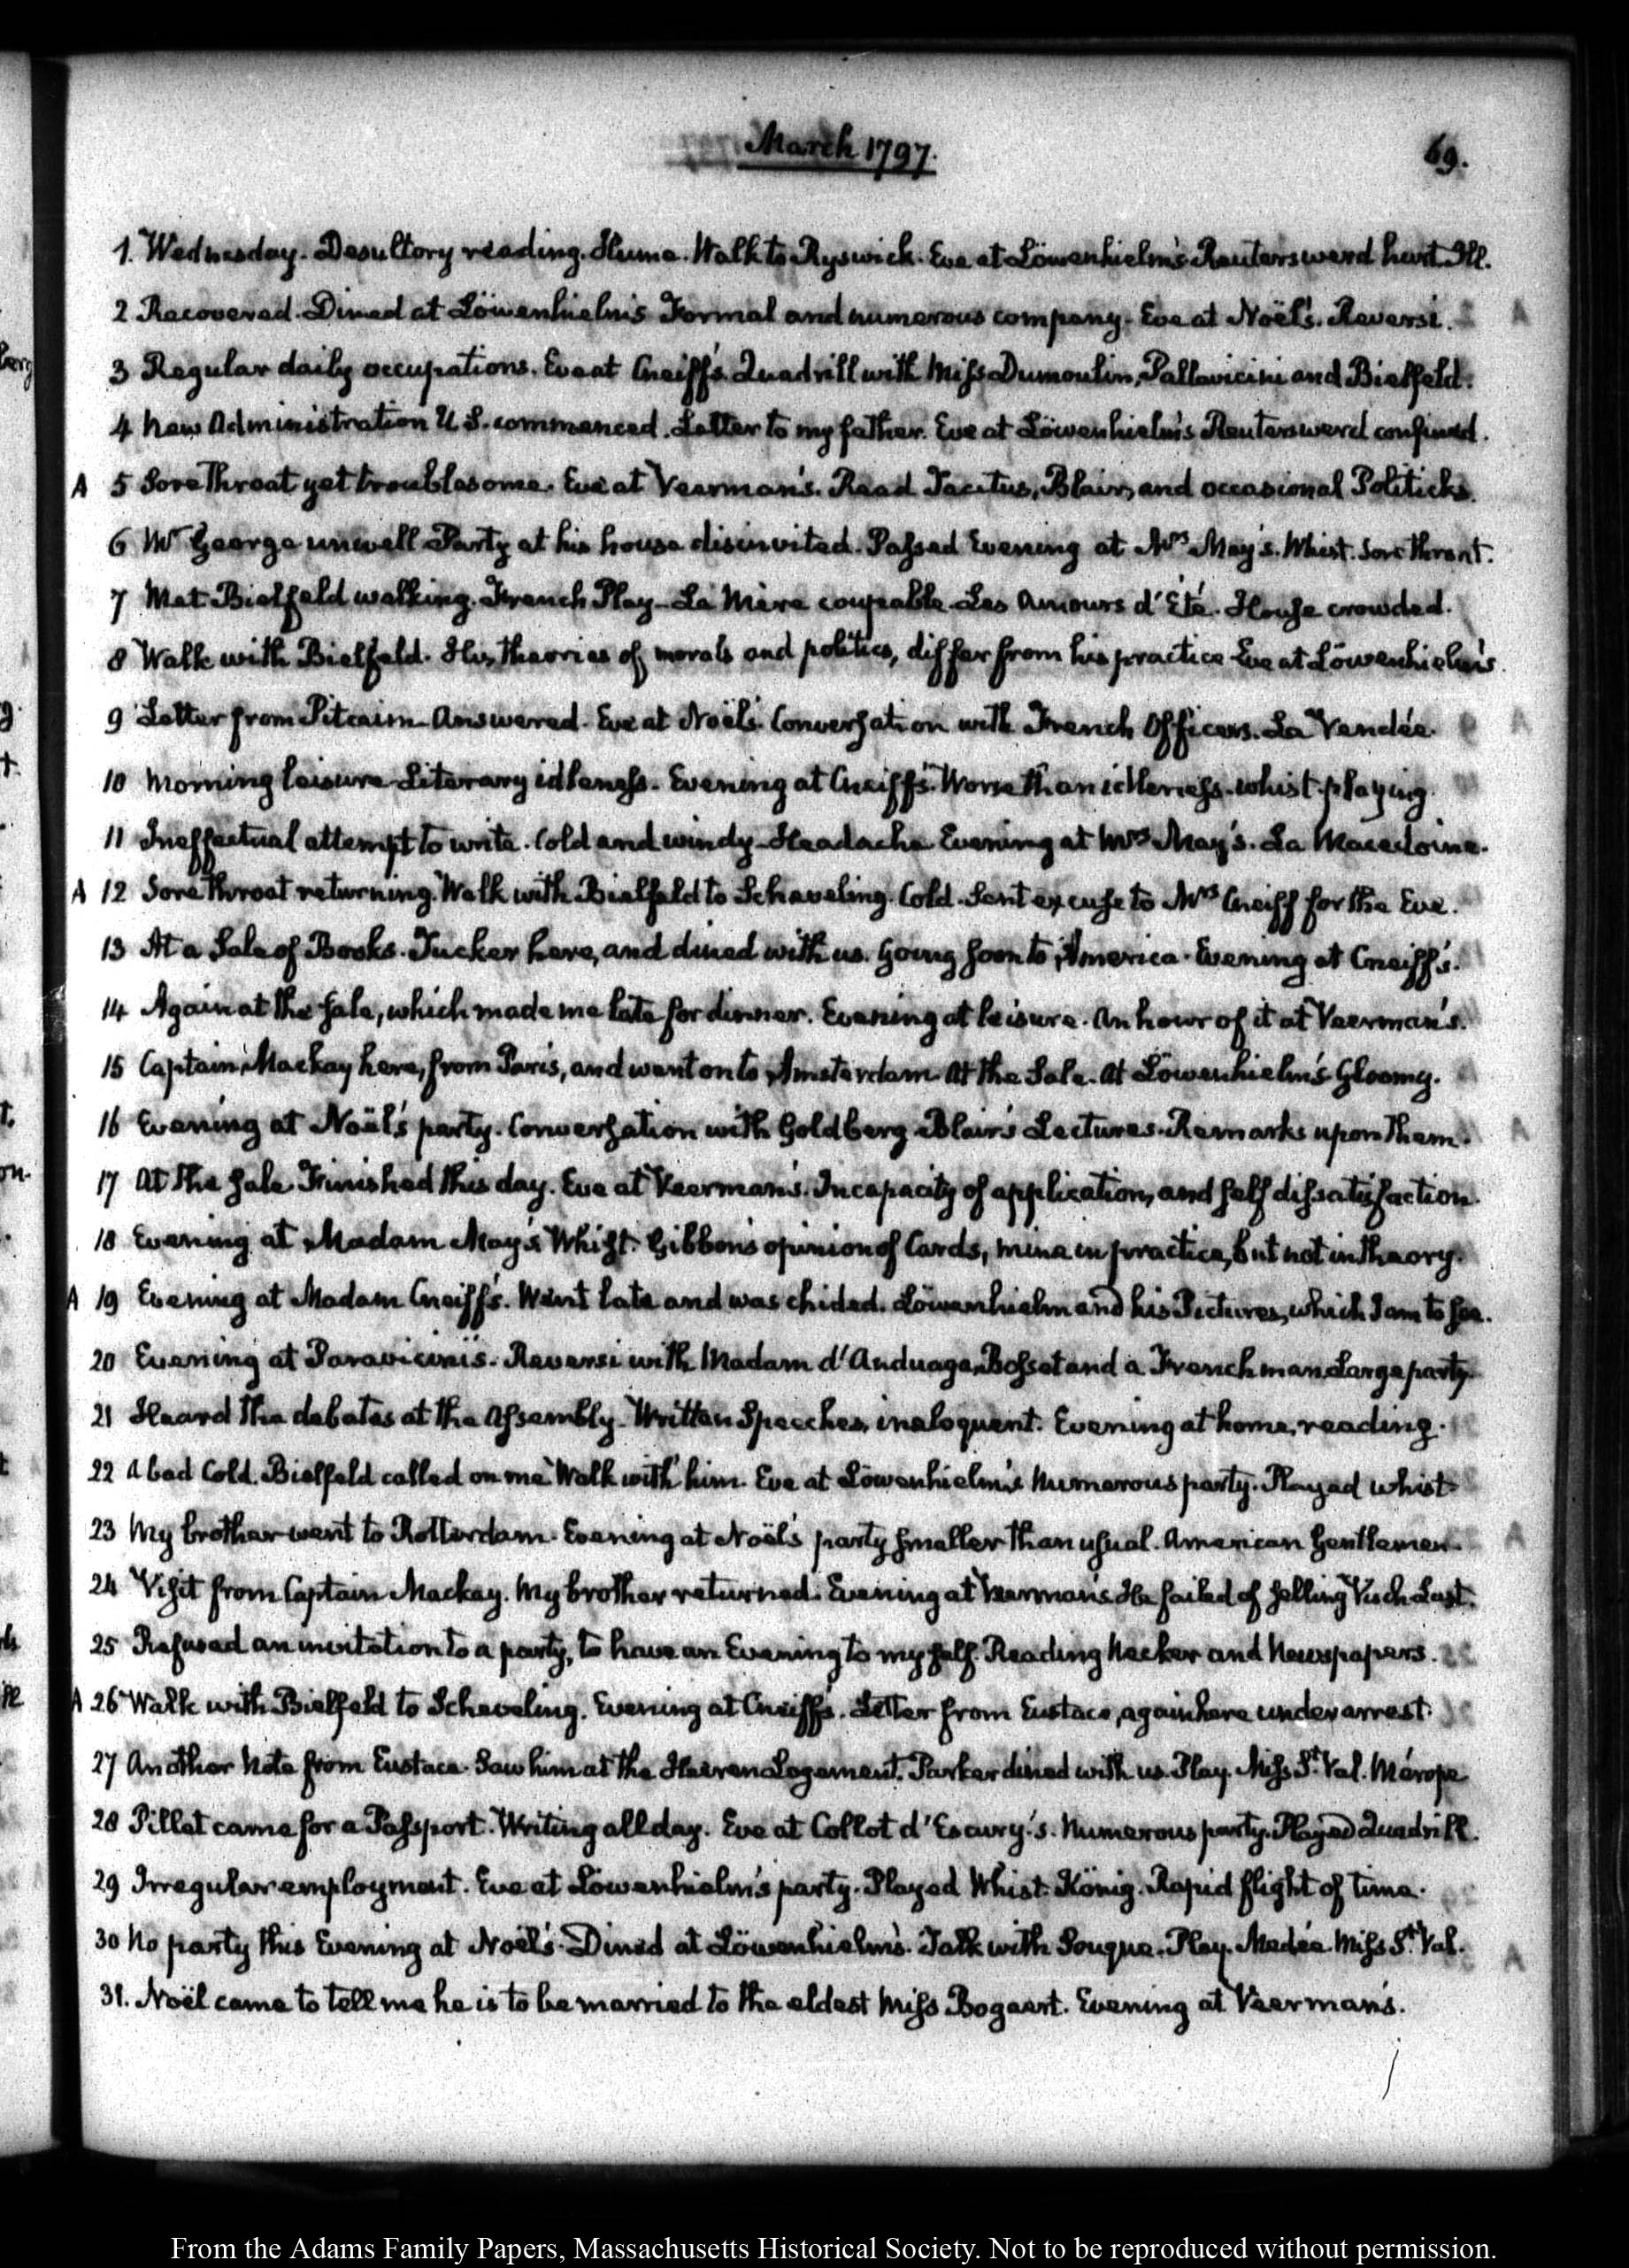 March 1797.
69.
1. Wednesday. Desultory reading. Hume. Walk to Ryswick. Eve at Löwenhielm's Reutersward hurt. Ill.
2 Recovered. Dined at Löwenhielm's Formal and numerous company. Eve at Noël's. Reversi.
3 Regular daily occupations. Eve at Cneiff's. Quadrill with Miss Dumoulin, Pallavicini and Bielfeld.
4 New Administration U.S. commenced. Letter to my father. Eve at Löwenhielm's Reutersward confined.
A 5 Sore Throat yet troublesome. Eve at Veerman's. Read Tacitus, Blair, and occasional Politicks.
6 Mr George unwell Party at his house disinvited. Passed Evening at Mrs May's. Whist. Sore throat.
7 Met Bielfeld walking. French Play. La Mère coupable. Les Amours d'Été. House crowded.
8 Walk with Bielfeld. His theories of morals and politics, differ from his practice. Eve at Löwenhielm's.
9 Letter from Pitcairn. Answered. Eve at Noël's. Conversation with French Officers. La Vendée.
10 Morning leisure. Literary idleness. Evening at Cneiff's. Worse than idleness. whist-playing.
11 Ineffectual attempt to write. Cold and windy. Headache. Evening at Mrs May's. La Macedoine.
A 12 Sore throat returning. Walk with Bielfeld to Scheveling. Cold. Sent excuse to Mrs Cneiff for the Eve.
13 At a Sale of Books. Tucker here, and dined with us. Going soon to America. Evening at Cneiff's.
14 Again at the sale, which made me late for dinner. Evening at leisure. An hour of it at Veerman's.
15 Captain Mackay here, from Paris, and went on to Amsterdam. At the Sale. At Löwenhielm's. Gloomy.
16 Evening at Noël's party. Conversation with Goldberg. Blair's Lectures. Remarks upon them.
17 At the sale. Finished this day. Eve at Veerman's. Incapacity of application, and self dissatisfaction.
18 Evening at Madam May's. Whist. Gibbon's opinion of Cards, mine in practice, but not in theory.
A 19 Evening at Madam Cneiff's. Went late and was chided. Löwenhielm and his Pictures, which I am to see.
20 Evening at Paravicini's. Reversi with Madam d'Anduaga, Bosset and a Frenchman. Large party.
21 Heard the debates at the Assembly. Written Speeches, ineloquent. Evening at home, reading.
22 A bad Cold. Bielfeld called on me. Walk with him. Eve at Löwenhielm's Numerous party. Played whist
23 My brother went to Rotterdam. Evening at Noël's party smaller than usual. American Gentlemen.
24 Visit from Captain Mackay. My brother returned. Evening at Veerman's. He failed of selling Visch Lust.
25 Refused an invitation to a party, to have an Evening to myself. Reading Necker and Newspapers.
A 26 Walk with Bielfeld to Scheveling. Evening at Cneiff's. Letter from Eustace, again here under arrest.
27 Another Note from Eustace. Saw him at the Heeren Logement. Parker dined with us. Play. Miss St. Val. Mérope
28 Pillet came for a Passport. Writing all day. Eve at Collot d'Escury's. Numerous party. Played Quadrill.
29 Irregular employment. Eve at Löwenhielm's party. Played Whist. König. Rapid flight of time.
30 No party this Evening at Noël's. Dined at Löwenhielm's. Talk with Souque. Play. Medée. Miss St. Val.
31. Noël came to tell me he is to be married to the eldest Miss Bogaert. Evening at Veerman's.
From the Adams Family Papers, Massachusetts Historical Society. Not to be reproduced without permission.